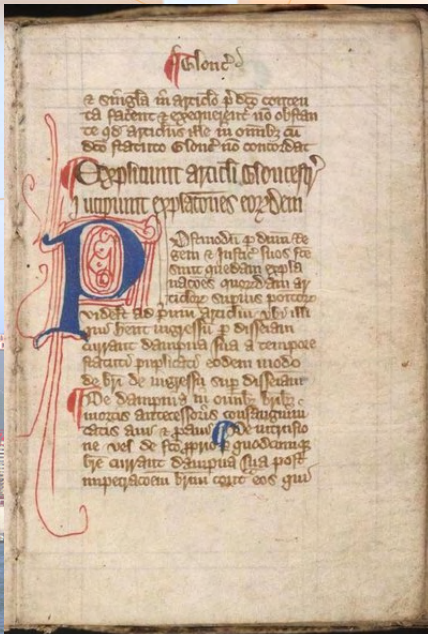 Glouc
& singla in articlo p dco conten
ta facent & exequerent no obstan
te qd articlus ille in omnibz cu
dco statuto Glouc no concordat
Expliciunt articli Gloucestr
& incipiunt explatones eorzdem
Postmodu p dnm Re
gem & Justic suos fce
sunt quedam expla
naciones quorzdam ar
ticlorz supius positorz
videlt ad pimu articlm vbi illi
qui hent ingressu p disseiam
currant dampna sua a tempore
statuti puplicati eodem modo
de bri de ingressu sup disseiam
De dampnis in omibz bribz
mortis antecessoris consanguini
tatis aui & paui De intrusio
ne vel de fco pprio quodcumqz
bre currant dampna sua post
impetracoem brium cont eos qui